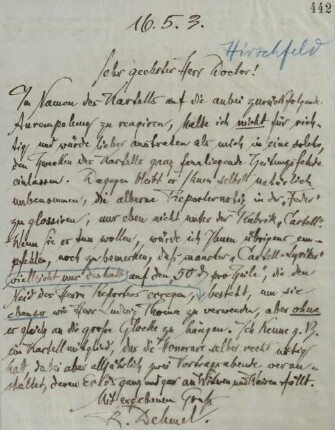 442
16. 5. 3.
Hirschfeld
Sehr geehrter Herr Doctor!
Im Namen des Kartells auf die anbei zurückfolgende
Anrempelung zu reagiren, halte ich nicht für rich-
tig, und würde lieber austreten als mich in eine solche,
den Zwecken des Kartells ganz fernliegende Zeitungsfehde
einlassen. Dagegen bleibt es Ihnen selbst natürlich
unbenommen, die alberne Reporternotiz in der "Feder"
zu glossiren, nur eben nicht unter der Rubrik "Cartell".
Wenn Sie es tun wollen, würde ich Ihnen übrigens em-
pfehlen, noch zu bemerken, daß mancher "Cartell-Lyriker"
vielleicht nur deshalb auf den "50 % pro Zeile", die den
Neid des Herrn Reporters erregen, besteht, um sie
ebenso wie Herr Ludwig Thoma zu verwenden, aber ohne
es gleich an die große Glocke zu hängen. Ich kenne z. B.
ein Kartellmitglied, das die Honorare selber recht nötig
hat, dabei aber alljährlich zwei Vortragsabende veran-
staltet, deren Erlös ganz und gar an Witwen und Waisen fällt.
Mit ergebenem Gruß
R. Dehmel.